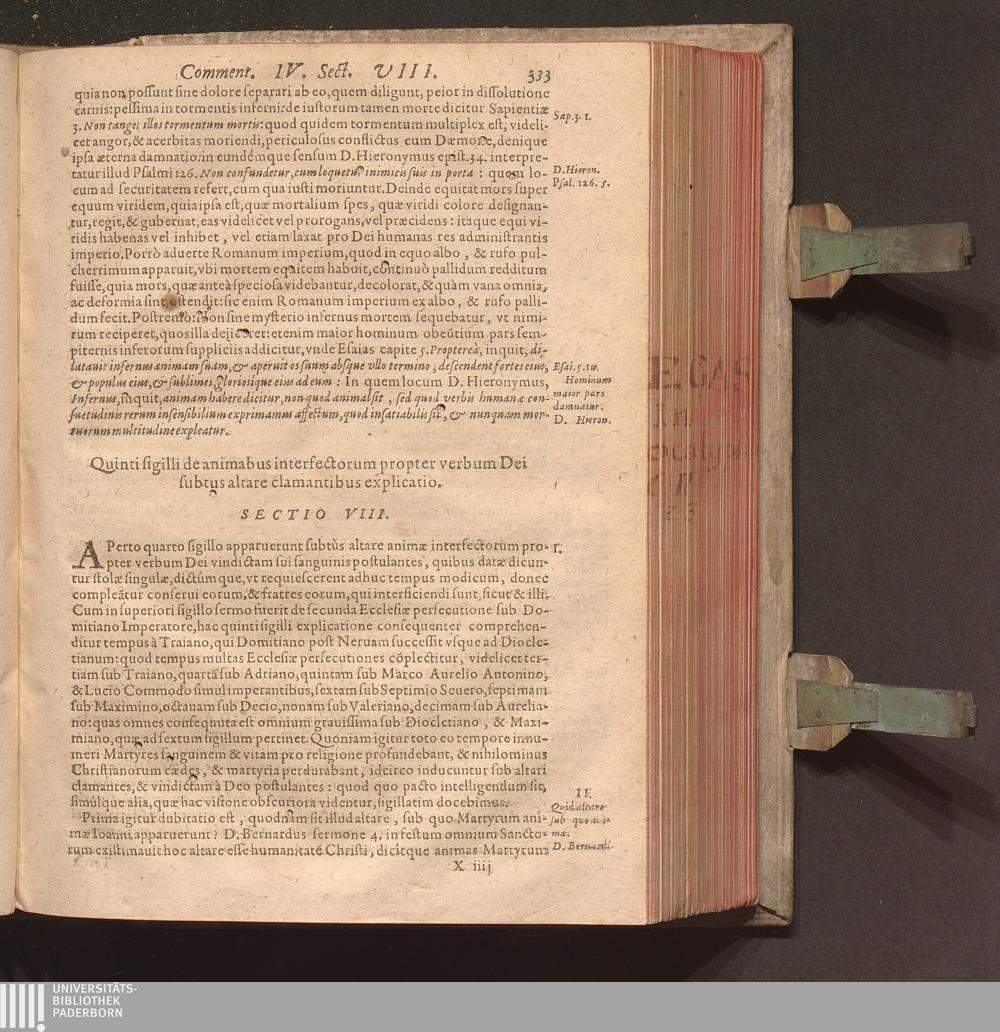 Comment. IV. Sect. VIII. 333
quia non possunt sine dolore separari ab eo, quem diligunt, peior in dissolutione
carnis: pessima in tormentis inferni: de iustorum tamen morte dicitur Sapientiæ
3. Non tanget illos tormentum mortis: quod quidem tormentum multiplex est, videli-
cet angor, & acerbitas moriendi, periculosus conflictus cum Dæmone, denique
ipsa æterna damnatio: in eundémque sensum D. Hieronymus epist. 34. interpre-
tatur illud Psalmi 126. Non confundetur, cum loquetur inimicis suis in porta : quem lo-
cum ad securitatem refert, cum qua iusti moriuntur. Deinde equitat mors super
equum viridem, quia ipsa est, quæ mortalium spes, quæ viridi colore designan-
tur, regit, & gubernat, eas videlicet vel prorogans, vel præcidens : itaque equi vi-
ridis habenas vel inhibet, vel etiam laxat pro Dei humanas res administrantis
imperio. Porrò aduerte Romanum imperium, quod in equo albo, & rufo pul-
cherrimum apparuit, vbi mortem equitem habuit, continuò pallidum redditum
fuisse, quia mors, quæ anteà speciosa videbantur, decolorat, & quàm vana omnia,
ac deformia sint, ostendit: sic enim Romanum imperium ex albo, & rufo palli-
dum fecit. Postremò: Non sine mysterio infernus mortem sequebatur, vt nimi-
rum reciperet, quos illa deijceret: etenim maior hominum obeũtium pars sem-
piternis inferorum suppliciis addicitur, vnde Esaias capite 5. Proptereà, inquit, di-
latauit infernus animam suam, & aperuit os suum absque vllo termino, descendent fortes eius,
& populus eius, & sublimes, gloriosique eius ad eum : In quem locum D. Hieronymus,
Infernus, inquit, animam habere dicitur, non quod animal sit, sed quod verbis humanæ con-
suetudinis rerum insensibilium exprimamus affectum, quod insatiabilis sit, & nunquam mor-
tuorum multitudine expleatur.
Sap. 3. 1.
D. Hieron.
Psal. 126. 5.
Esai. 5. 14.
Hominum
maior pars
damnatur.
D. Hieron.
Quinti sigilli de animabus interfectorum propter verbum Dei
subtus altare clamantibus explicatio.
SECTIO VIII.
APerto quarto sigillo apparuerunt subtùs altare animæ interfectorum pro-
pter verbum Dei vindictam sui sanguinis postulantes, quibus datæ dicun-
tur stolæ singulæ, dictúmque, vt requiescerent adhuc tempus modicum, donec
compleãtur conserui eorum, & fratres eorum, qui interficiendi sunt, sicut & illi.
Cum in superiori sigillo sermo fuerit de secunda Ecclesiæ persecutione sub Do-
mitiano Imperatore, hac quinti sigilli explicatione consequenter comprehen-
ditur tempus à Traiano, qui Domitiano post Neruam successit vsque ad Diocle-
tianum: quod tempus multas Ecclesiæ persecutiones cõplectitur, videlicet ter-
tiam sub Traiano, quartã sub Adriano, quintam sub Marco Aurelio Antonino,
& Lucio Commodo simul imperantibus, sextam sub Septimio Seuero, septimam
sub Maximino, octauam sub Decio, nonam sub Valeriano, decimam sub Aurelia-
no: quas omnes consequuta est omnium grauissima sub Diocletiano, & Maxi-
miano, quæ ad sextum sigillum pertinet. Quoniam igitur toto eo tempore innu-
meri Martyres sanguinem & vitam pro religione profundebant, & nihilominus
Christianorum cædes, & martyria perdurabant, idcirco inducuntur sub altari
clamantes, & vindictam à Deo postulantes : quod quo pacto intelligendum sit,
simúlque alia, quæ hac visione obscuriora videntur, sigillatim docebimus.
Prima igitur dubitatio est, quodnam sit illud altare, sub quo Martyrum ani-
mæ Ioanni apparuerunt? D. Bernardus sermone 4. in festum omnium Sancto-
rum existimauit hoc altare esse humanitatẽ Christi, dicítque animas Martyrum
I.
II.
Quid altare
sub quo ani-
mæ.
D. Bernard.
X iiij
UNIVERSITÄTS-
BIBLIOTHEK
PADERBORN